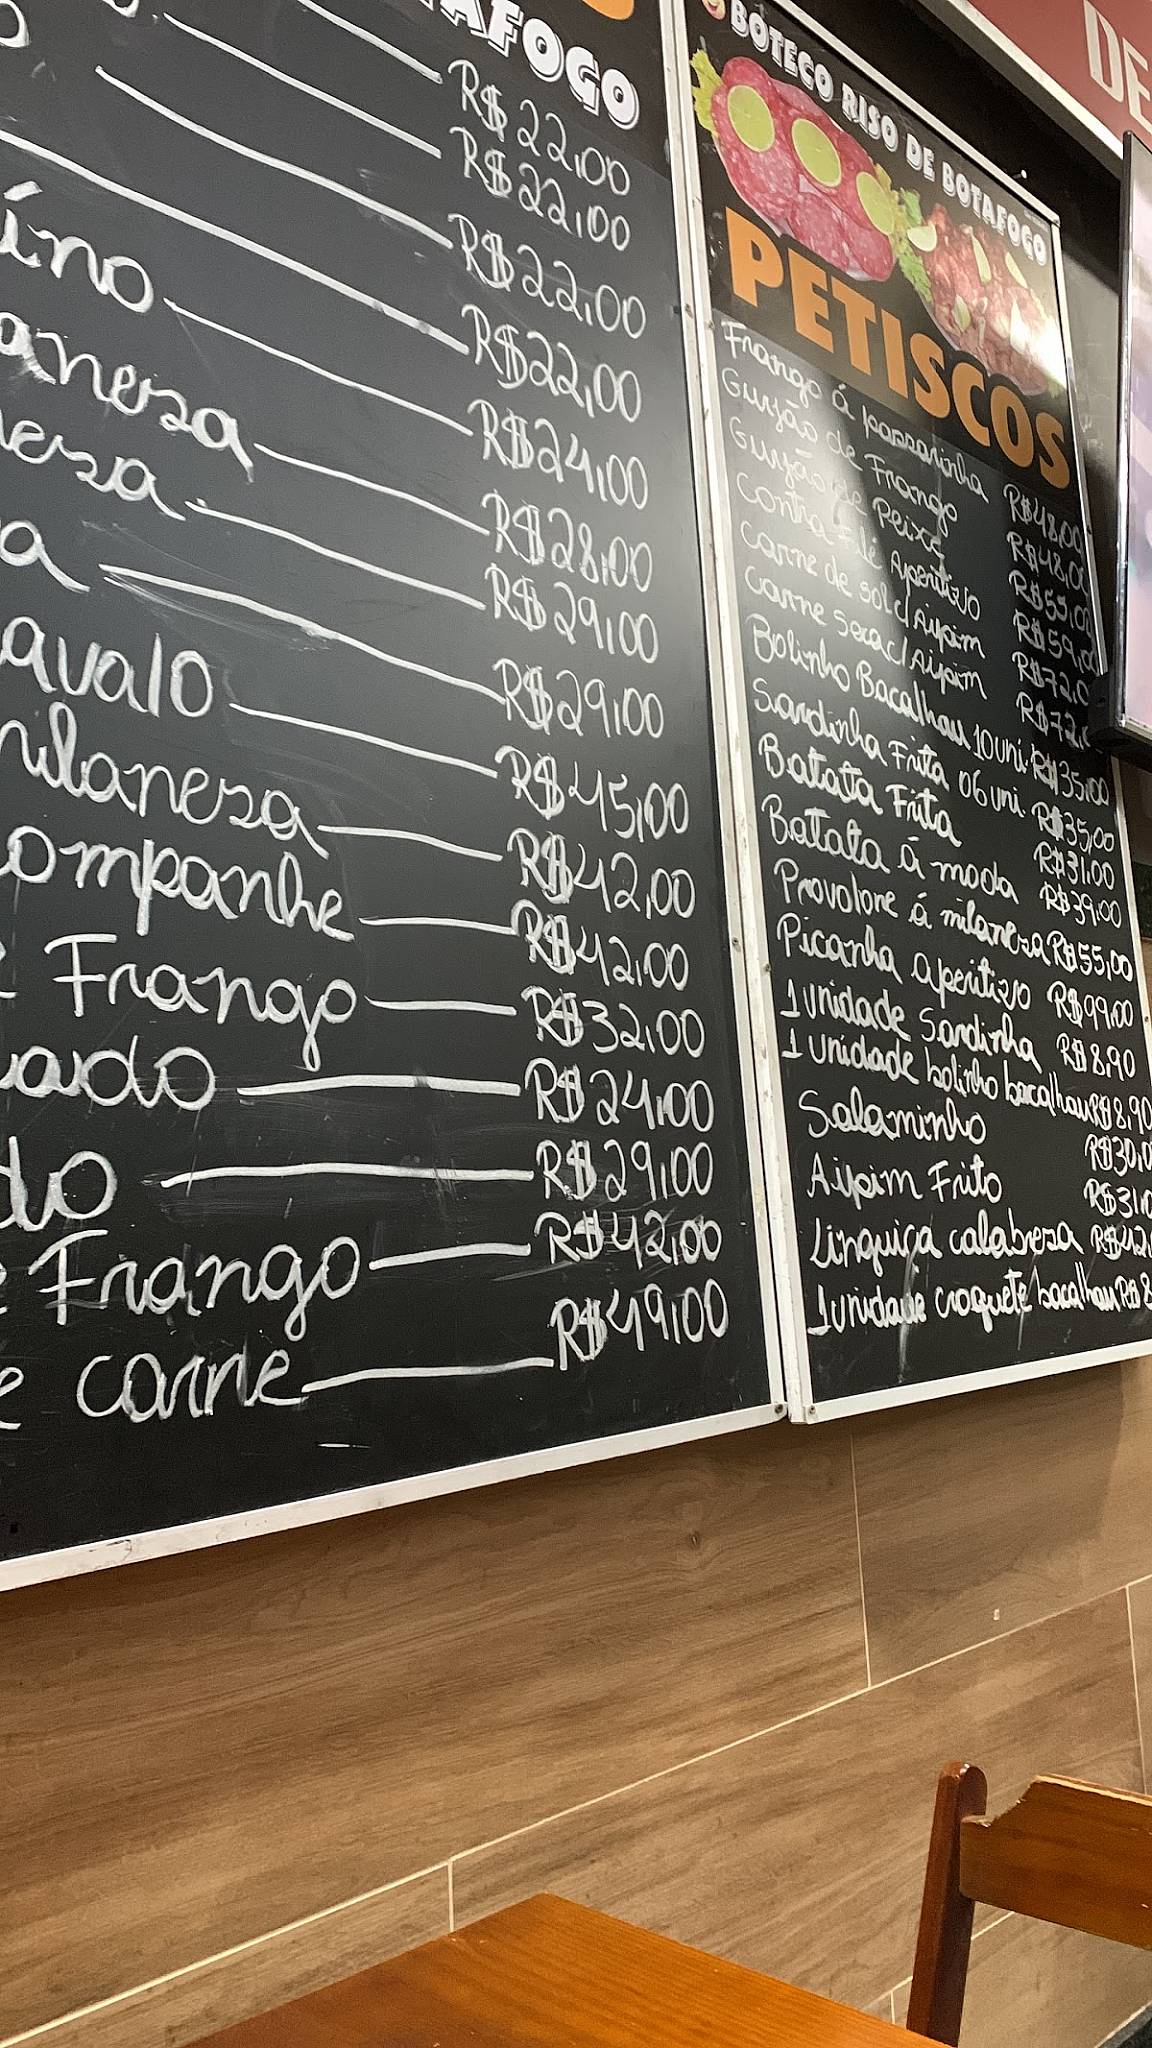 TAFOGO
R$22,00
R$22,00
R$22,00
R$22,00
ino R$24,00
aneza R$28,00
neza R$29,00
a R$29,00
avalo R$45,00
milaneza R$42,00
companhe R$42,00
Frango R$32,00
R$24,00
do R$29,00
Frango R$42,00
e carne R$49,00
BOTECO RISO DE BOTAFOGO
PETISCOS
Frango á passarinha R$48,00
Gurjão de Frango R$48,00
Gurjão de Peixe R$55,00
Contra Filé Aperitivo R$59,00
Carne de sol c/ Aipim R$72,0
Carne seca c/ Aipim R$72,
Bolinho Bacalhau 10uni. R$35,00
Sardinha Frita 06uni. R$35,00
Batata Frita R$31,00
Batata á moda R$39,00
Provolone á milaneza R$55,00
Picanha aperitivo R$99,00
1 unidade Sardinha R$8,90
1 unidade bolinho bacalhau R$8,90
Salaminho R$30,0
Aipim Frito R$31,0
Linguiça calabreza R$42,
1 unidade croquete bacalhau R$8
DE